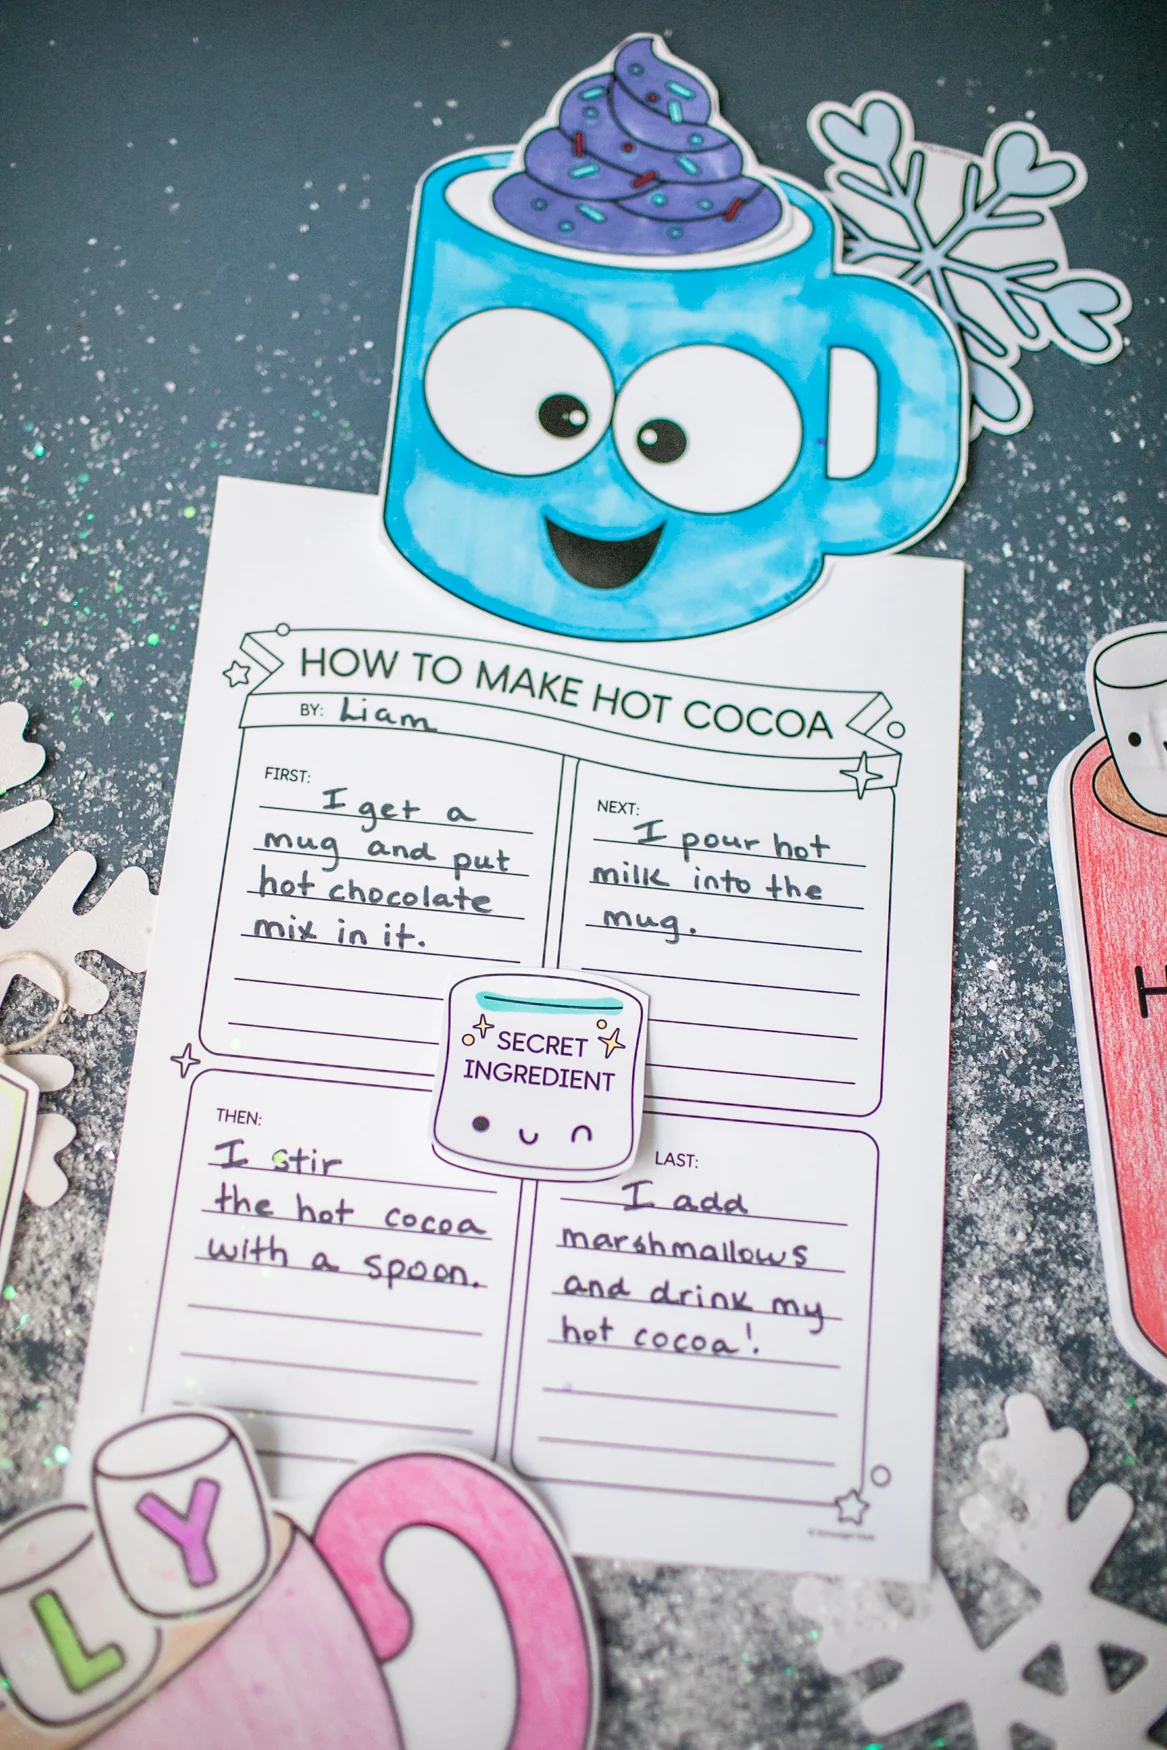 HOW TO MAKE HOT COCOA
BY: Liam
FIRST:
I get a
mug and put
hot chocolate
mix in it.
NEXT:
I pour hot
milk into the
mug.
SECRET
INGREDIENT
THEN:
I stir
the hot cocoa
with a spoon.
LAST:
I add
marshmallows
and drink my
hot cocoa!
Y
L
H